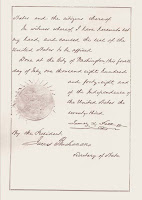 States and the citizens thereof.
In witness whereof, I have hereunto set
my hand, and caused the seal of the
United States to be affixed.
Done at the City of Washington, this fourth
day of July, one thousand eight hundred
and forty-eight, and
of the Independence of
the United States the
seventy-third.
James K. Polk
By the President:
James Buchanan
Secretary of State